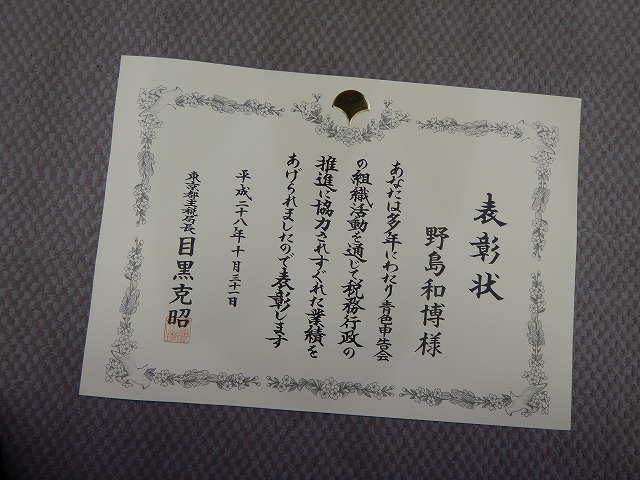 表彰状
野島和博様
あなたは多年にわたり青色申告会
の組織活動を通じて税務行政の
推進に協力されすぐれた業績を
あげられましたので表彰します
平成二十八年十月三十一日
東京都主税局長 目黒克昭